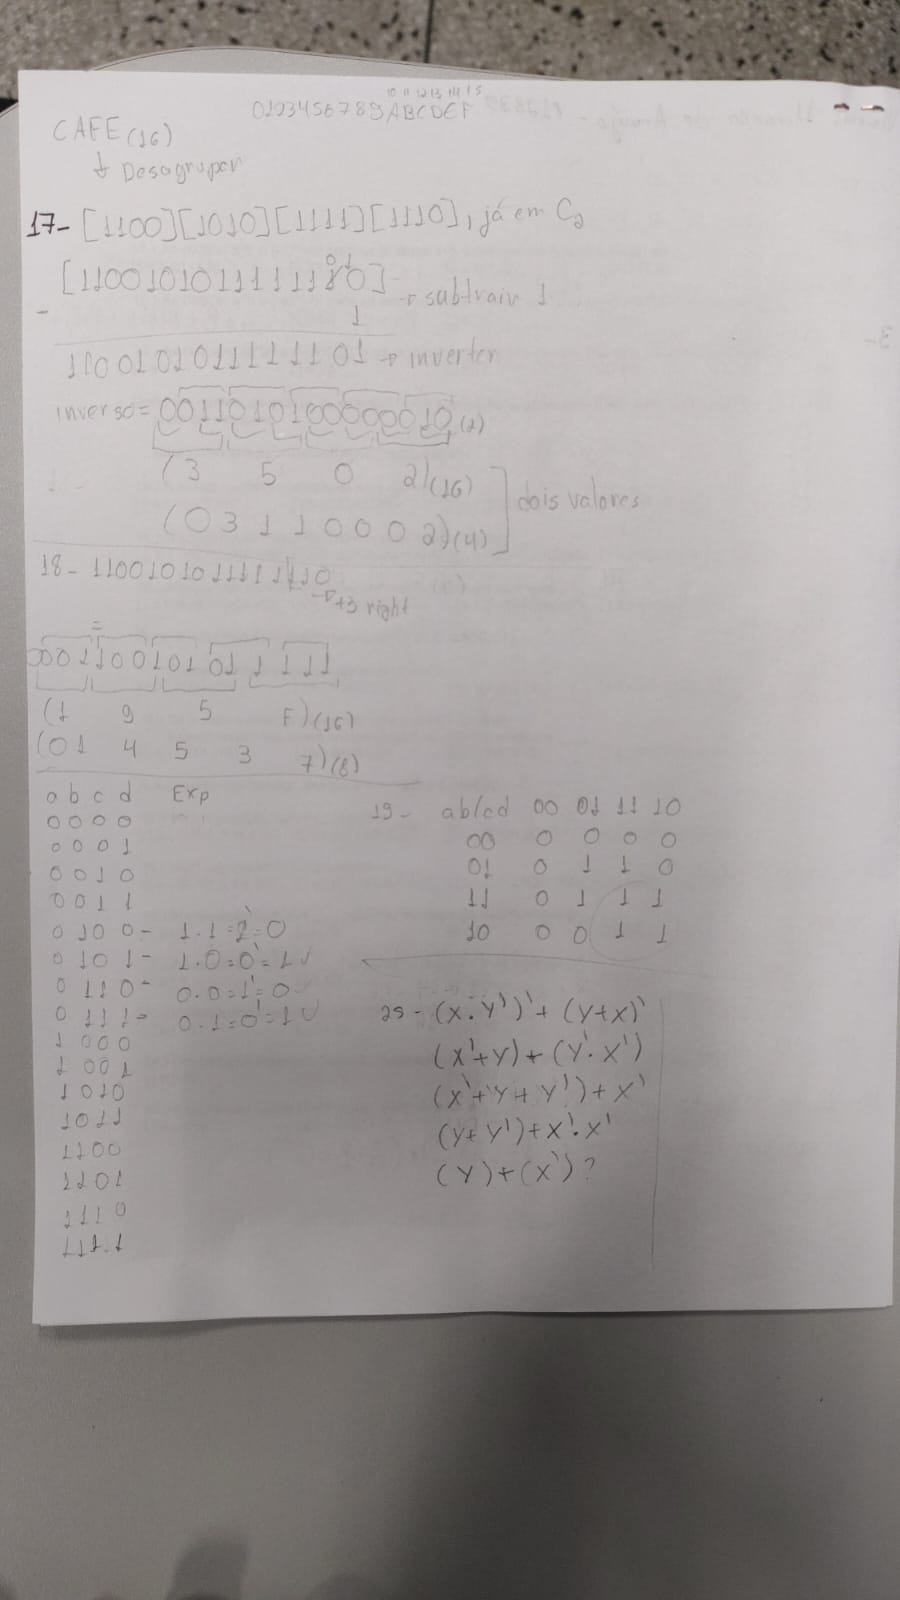 10 11 12 13 14 15
0123456789ABCDEF
CAFE(16)
↓ Desagrupar
17- [1100][1010][1111][1110], já em C2
[1100101011111110] → subtrair 1
- 1
1100101011111101 → inverter
inverso = 0011010100000010(2)
(3 5 0 2)(16)
(0 3 1 1 0 0 0 2)(4)
dois valores
18- 1100101011111110
→ +3 right
=
0001100101011111
(1 9 5 F)(16)
(01 4 5 3 7)(8)
a b c d Exp
0000
0001
0010
0011
0100- 1.1=2'=0
0101- 1.0=0'=1✓
0110- 0.0=1'=0
0111- 0.1=0'=1✓
1000
1001
1010
1011
1100
1101
1110
1111
19- ab/cd 00 01 11 10
00 0 0 0 0
01 0 1 1 0
11 0 1 1 1
10 0 0 1 1
(x.y')'+(y+x)'
(x'+y)+(y'.x')
(x'+y+y')+x'
(y+y')+x'.x'
(y)+(x')?
3-